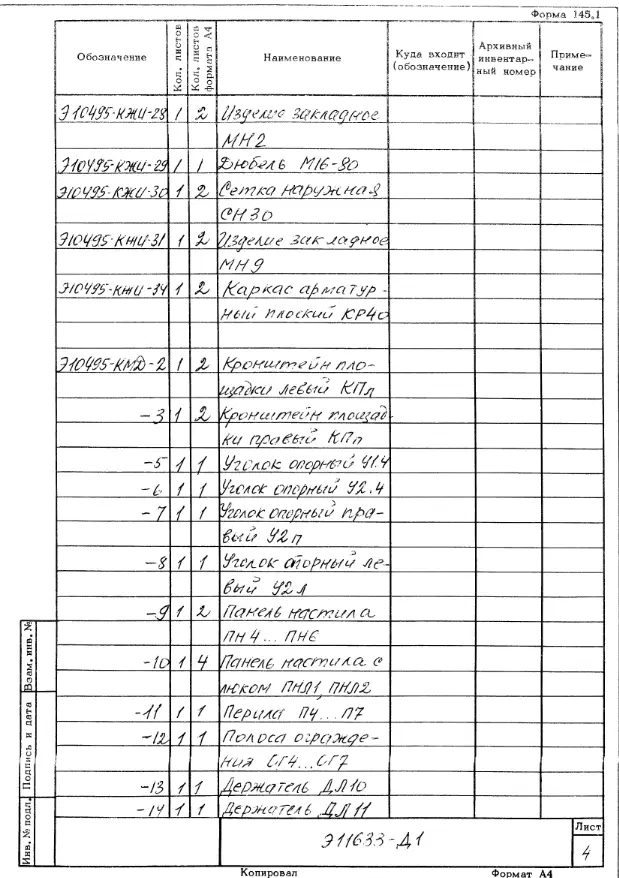 Форма 145.1
Обозначение Кол. листов Кол. листов формата А4 Наименование Куда входит (обозначение) Архивный инвентарный номер Примечание
Э10495-КЖИ-28 1 2 Изделие закладное
МН2
Э10495-КЖИ-29 1 1 Дюбель М16-80
Э10495-КЖИ-30 1 2 Сетка наружная
СН30
Э10495-КЖИ-31 1 2 Изделие закладное
МН9
Э10495-КЖИ-34 1 2 Каркас арматур-
ный плоский КР40
Э10495-КМД-2 1 2 Кронштейн пло-
щадки левый КПл
-3 1 2 Кронштейн площад-
ки правый КПп
-5 1 1 Уголок опорный У1.4
-6 1 1 Уголок опорный У2.4
-7 1 1 Уголок опорный пра-
вый У2п
-8 1 1 Уголок опорный ле-
вый У2л
-9 1 2 Панель настила
ПН4...ПН6
-10 1 4 Панель настила с
люком ПНЛ1, ПНЛ2
-11 1 1 Перила П4...П7
-12 1 1 Полоса огражде-
ния СГ4...СГ7
-13 1 1 Держатель ДЛ10
-14 1 1 Держатель ДЛ11
Взам. инв. №
Подпись и дата
Инв. № подл.
Э11633-Д1
Лист
4
Копировал Формат А4